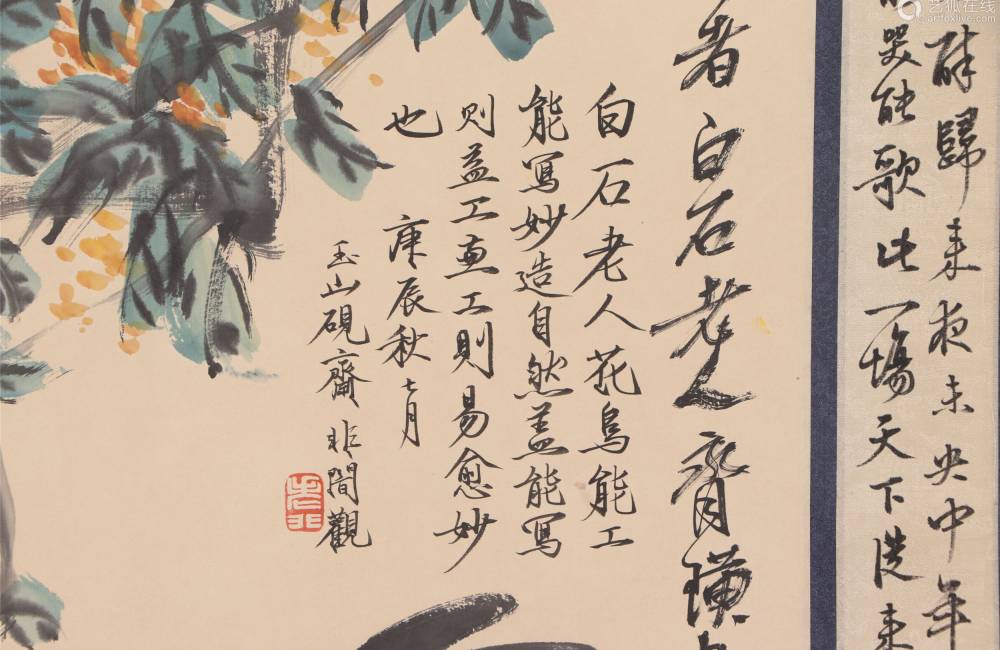 醉歸來夜未央中年
哭能歌此一場天下從來
者白石老人齊璜
白石老人花鳥能工
能寫妙造自然蓋能寫
則益工更工則易愈妙
也 庚辰秋七月
玉山硯齋非闇觀
艺狐在线
artfoxlive.com